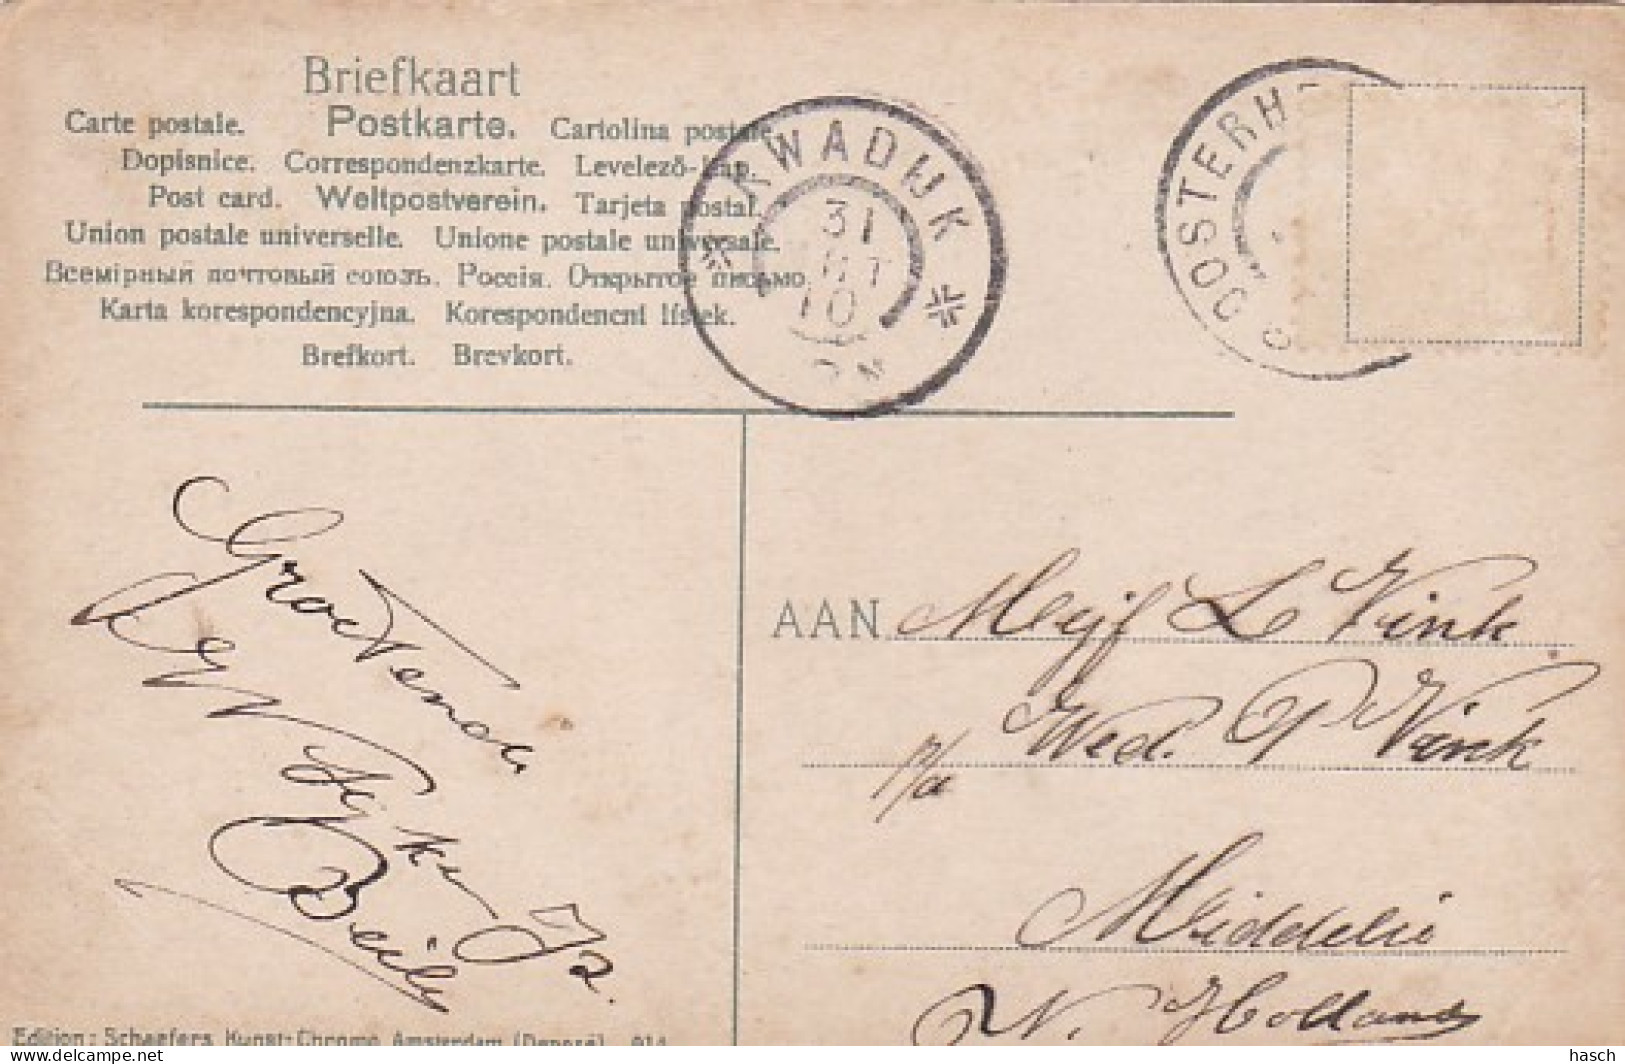 Briefkaart
Carte postale. Postkarte. Cartolina postale.
Dopisnice. Correspondenzkarte. Levelező-lap.
Post card. Weltpostverein. Tarjeta postal.
Union postale universelle. Unione postale universale.
Всемірный почтовый союзъ. Россія. Открытое письмо.
Karta korespondencyjna. Korespondencni lístek.
Brefkort. Brevkort.
KWADIJK
31
10
OOSTERH
Groetende
Beils
AAN Mejf L Vink
p/a Wed. P Vink
Middelie
N. Holland
Edition: Schaefers Kunst-Chromo Amsterdam (Deposé)
hasch
delcampe.net